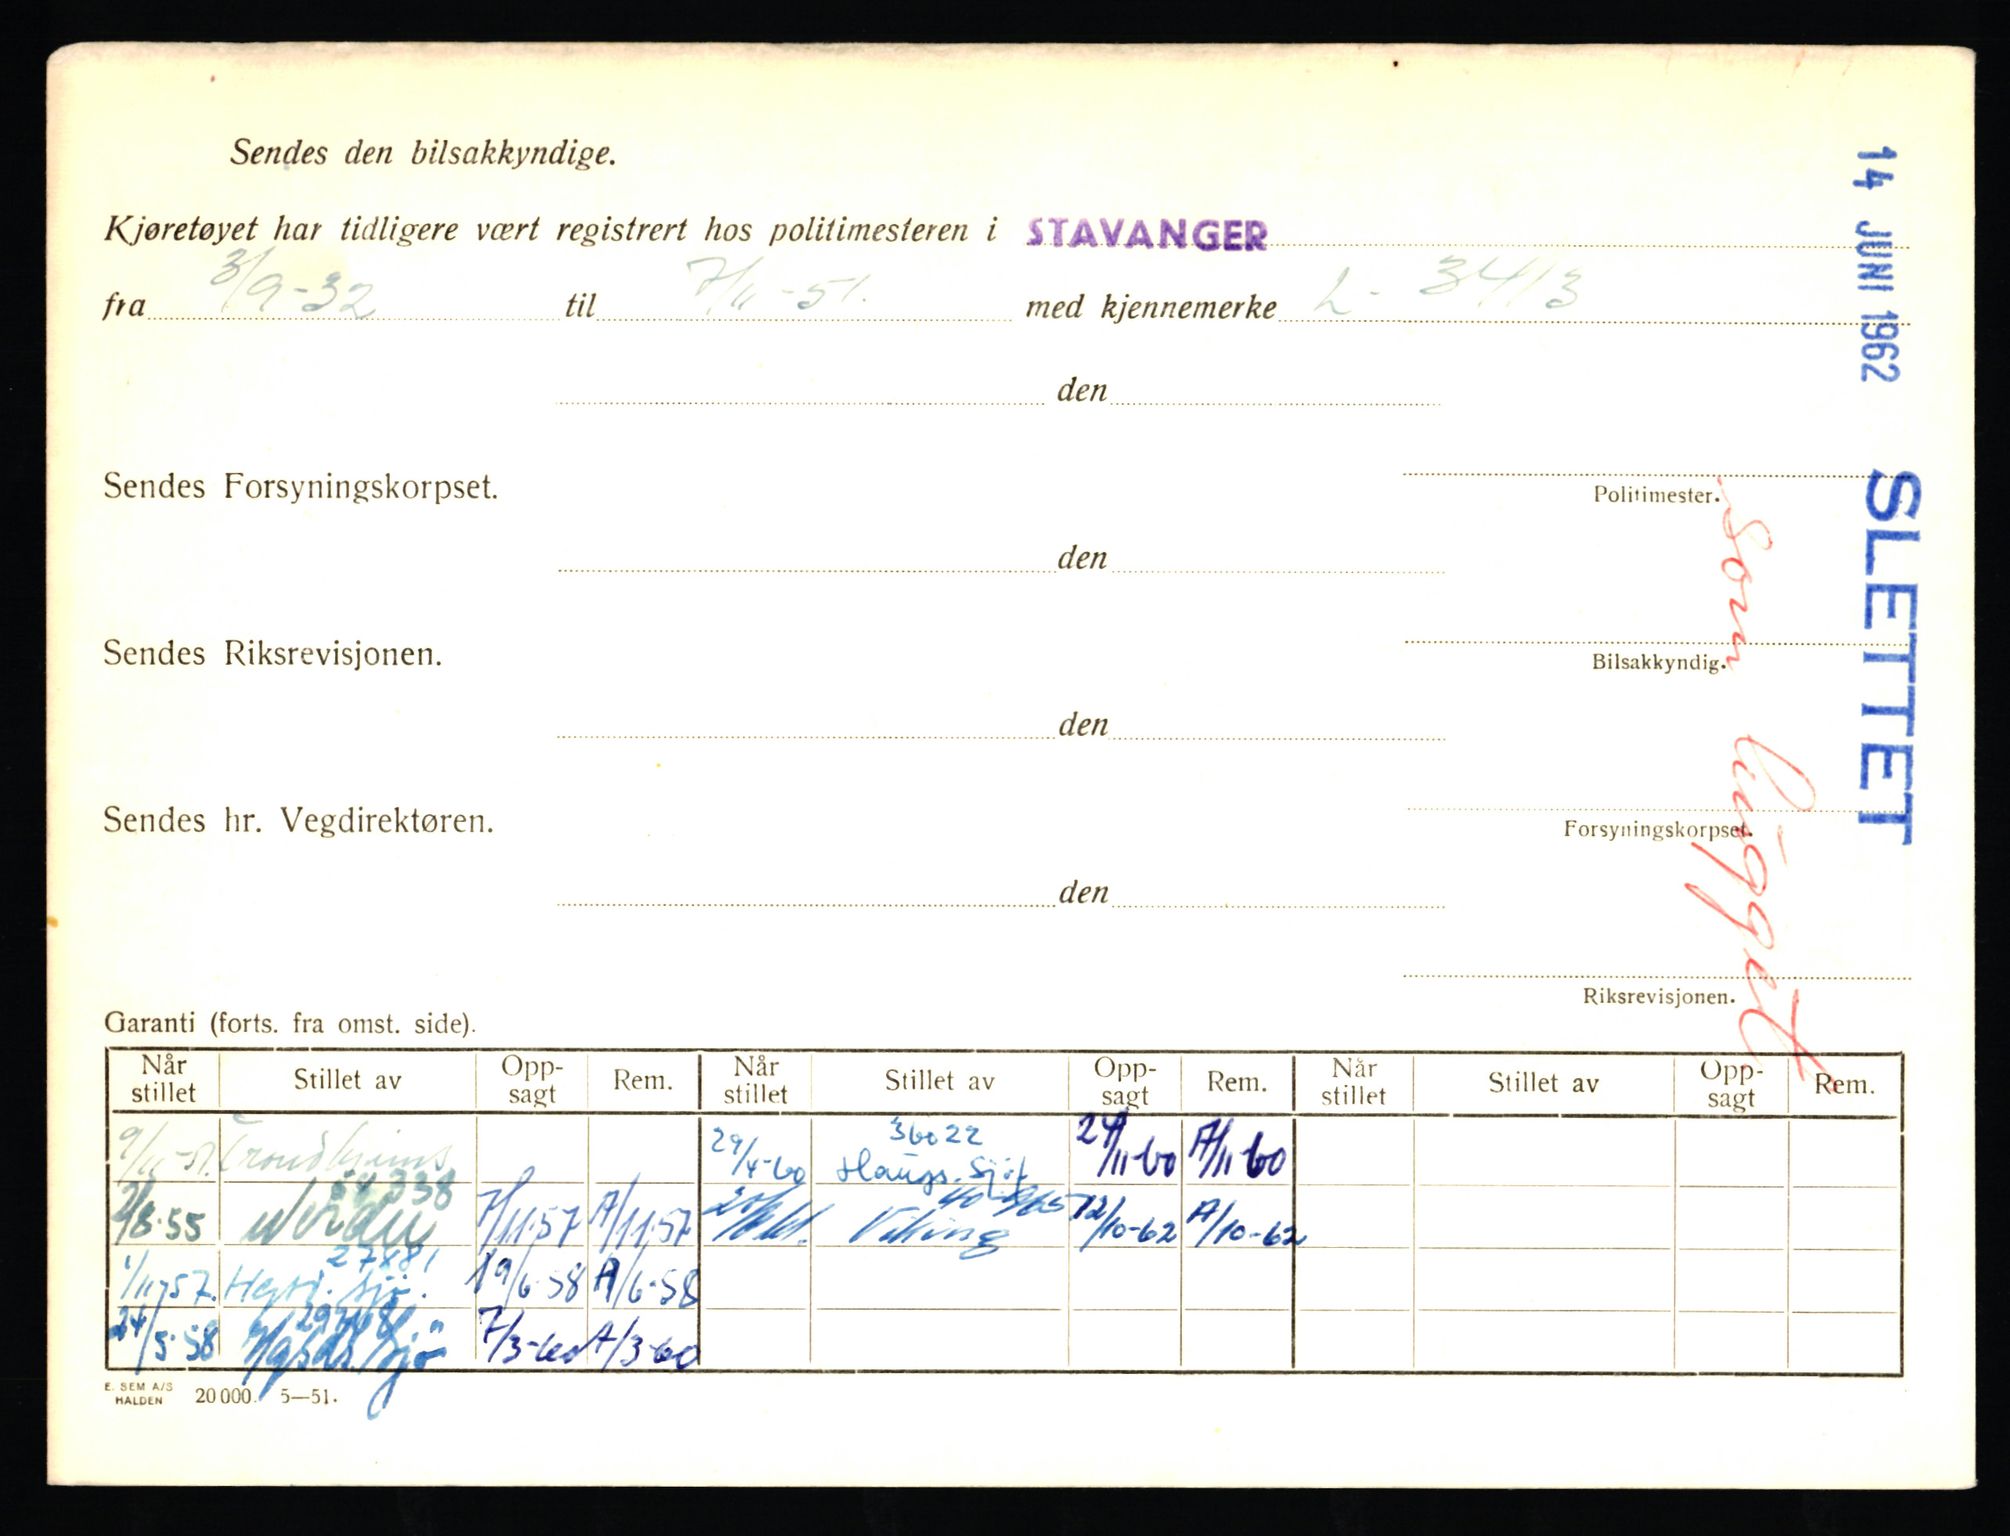 Sendes den bilsakkyndige.
Kjøretøyet har tidligere vært registrert hos politimesteren i STAVANGER
fra 3/9-32 til 7/11-51. med kjennemerke L- 3413
den
Politimester.
Sendes Forsyningskorpset.
den
Bilsakkyndig.
Sendes Riksrevisjonen.
den
Forsyningskorpset.
Sendes hr. Vegdirektøren.
den
Riksrevisjonen.
14 JUNI 1962 SLETTET
som
Garanti (forts. fra omst. side).
Når stillet Stillet av Opp-sagt Rem. Når stillet Stillet av Opp-sagt Rem. Når stillet Stillet av Opp-sagt Rem.
9/11-51. Trondhjems 29/4-60 36022 Haugs. Sjøf 24/11-60 A/11-60
8.55 54338 7/11.57 A/11.57 Viking 12/10-62 A/10-62
1/11-57. 27881 19/6-58 A/6-58
24/5-58 7/3-60 A/3-60
E. SEM A/S
HALDEN 20 000. 5—51.